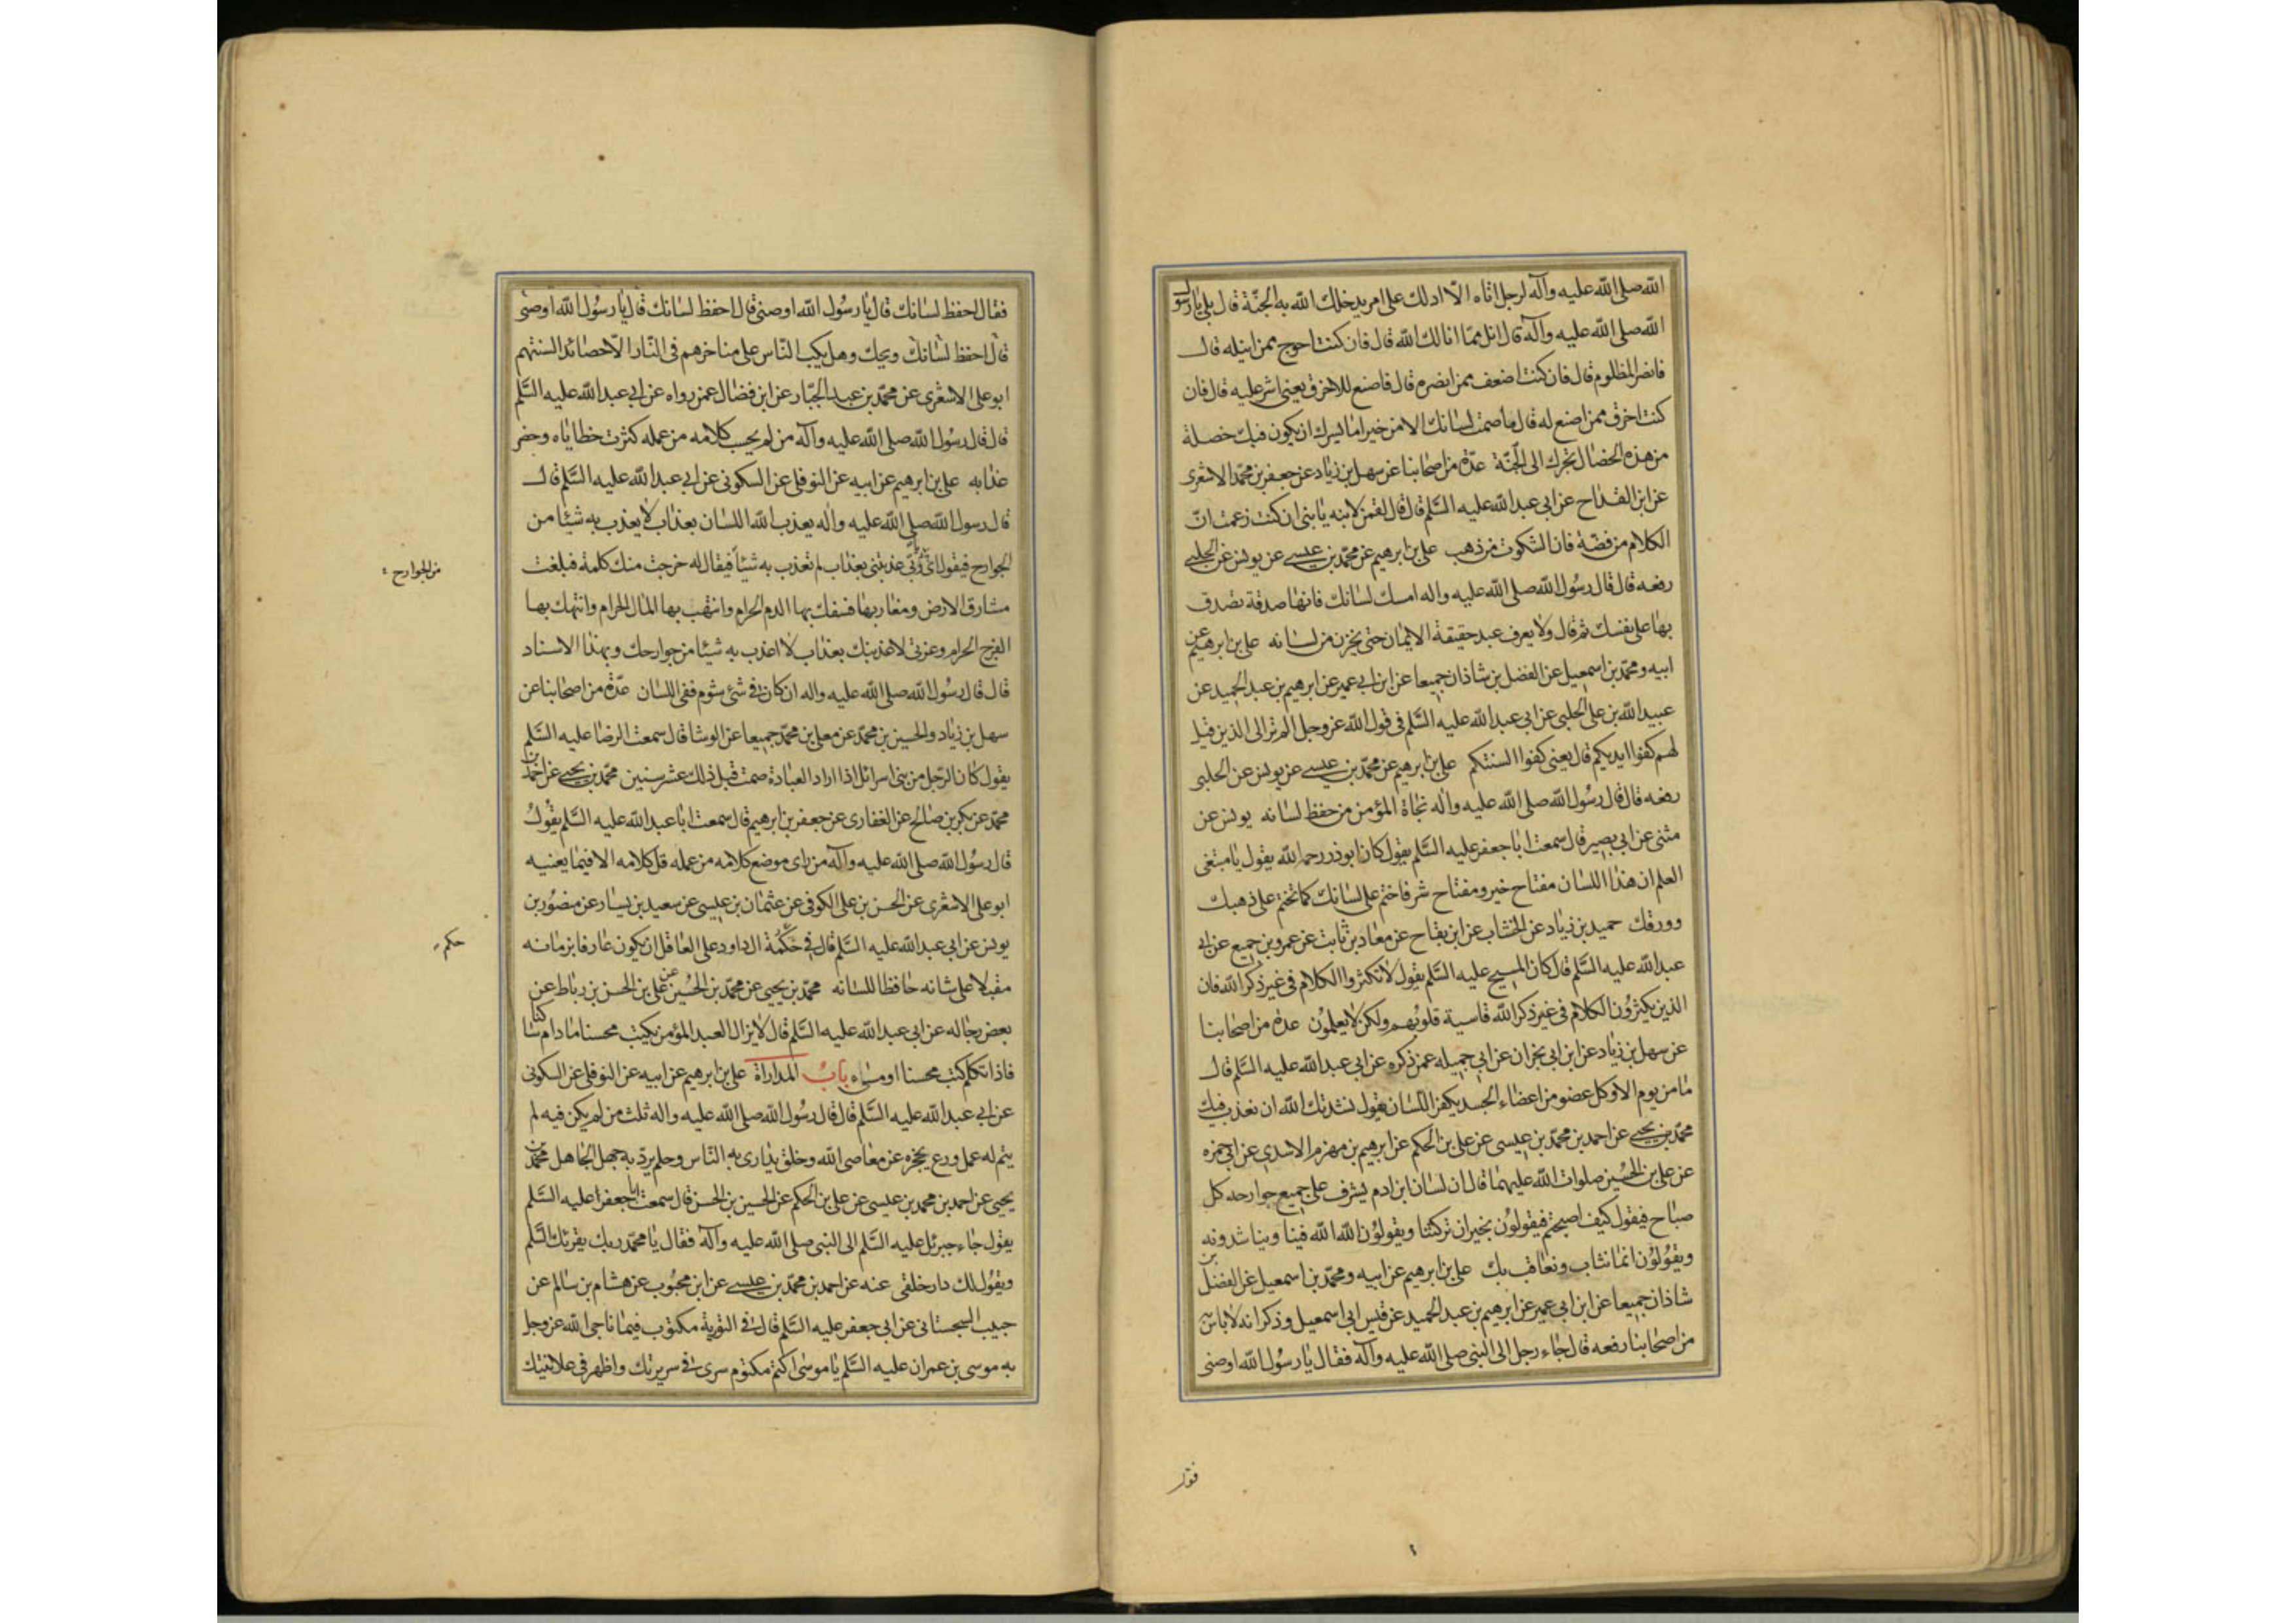 الله صلى الله عليه وآله لرجل اتاه الا ادلك على امر يدخلك الله به الجنّة قال بلى يا رسول
الله صلى الله عليه وآله قال انل ممّا انالك الله قال فان كنت احوج ممن انيله قال
فانصر المظلوم قال فان كنت اضعف ممن انصره قال فاصنع للاخرق يعنى اشر عليه قال فان
كنت اخرق ممن اصنع له قال فاصمت لسانك الا من خير اما يسرك ان يكون فيك خصلة
من هذه الخصال تجرك الى الجنّة عدّة من اصحابنا عن سهل بن زياد عن جعفر بن محمّد الاشعرى
عن ابن القداح عن ابى عبد الله عليه السَّلم قال قال لقمن لابنه يا بنى ان كنت زعمت انّ
الكلام من فضّة فان السّكوت من ذهب على بن ابرهيم عن محمّد بن عيسى عن يونس عن الحلبى
رفعه قال قال رسُول الله صلى الله عليه واله امسك لسانك فانها صدقة تصدق
بها على نفسك ثم قال ولا يعرف عبد حقيقة الايمان حتى يخزن من لسانه على بن ابرهيم عن
ابيه ومحمّد بن اسمعيل عن الفضل بن شاذان جميعا عن ابن ابى عمير عن ابرهيم بن عبد الحميد عن
عبيد الله بن على الحلبى عن ابى عبد الله عليه السَّلم فى قول الله عزوجل الم تر الى الذين قيل
لهم كفوا ايديكم قال يعنى كفوا السنتكم على بن ابرهيم عن محمّد بن عيسى عن يونس عن الحلبى
رفعه قال قال رسُول الله صلى الله عليه واله نجاة المؤمن من حفظ لسانه يونس عن
مثنى عن ابى بصير قال سمعت ابا جعفر عليه السَّلم يقول كان ابوذر رحمه الله يقول يا مبتغى
العلم ان هذا اللسان مفتاح خير ومفتاح شر فاختم على لسانك كما تختم على ذهبك
وورقك حميد بن زياد عن الخشاب عن ابن بقاح عن معاد بن ثابت عن عمرو بن جميع عن ابى
عبد الله عليه السَّلم قال كان المسيح عليه السَّلم يقول لا تكثروا الكلام فى غير ذكر الله فان
الذين يكثرُون الكلام فى غير ذكر الله قاسية قلوبهم ولكن لا يعلمُون عدة من اصحابنا
عن سهل بن زياد عن ابن ابى نجران عن ابى جميله عمن ذكره عن ابى عبد الله عليه السَّلم قال
ما من يوم الا وكل عضو من اعضاء الجسد يكفر اللسان يقول نشدتك الله ان نعذب فيك
محمّد بن يحيى عن احمد بن محمّد بن عيسى عن على بن الحكم عن ابرهيم بن مهزم الاسدى عن ابى حمزه
عن على بن الحُسين صلوات الله عليهما قال ان لسان ابن ادم يشرف على جميع جوارحه كل
صباح فيقول كيف اصبحتم فيقولُون بخير ان تركتنا ويقولُون الله الله فينا ويناشدونه
ويقُولُون انما نثاب ونعاقب بك على بن ابرهيم عن ابيه ومحمّد بن اسمعيل عن الفضل بن
شاذان جميعا عن ابن ابى عمير عن ابرهيم بن عبد الحميد عن قيس ابى اسمعيل وذكر انه لا باس به
من اصحابنا رفعه قال جاء رجل الى النبى صلى الله عليه وآله فقال يا رسُول الله اوصنى
فقال احفظ لسانك قال يا رسُول الله اوصنى قال احفظ لسانك قال يا رسُول الله اوصنى
قال احفظ لسانك ويحك وهل يكب النّاس على مناخرهم فى النّار الّا حصائد السنتهم
ابو على الاشعرى عن محمّد بن عبد الجبّار عن ابن فضال عمن رواه عن ابى عبد الله عليه السَّلم
قال قال رسُول الله صلى الله عليه وآله من لم يحسب كلامه من عمله كثرت خطاياه وحضر
عذابه على بن ابرهيم عن ابيه عن النوفلى عن السكونى عن ابى عبد الله عليه السَّلم قال
قال رسول الله صلى الله عليه واله يعذب الله اللسان بعذاب لا يعذب به شيئا من
الجوارح فيقول اى ربّ عذبتنى بعذاب لم تعذب به شيئاً فيقال له خرجت منك كلمة فبلغت
من الجوارح
مشارق الارض ومغاربها فسفك بها الدم الحرام وانتهب بها المال الحرام وانتهك بها
الفرج الحرام وعزتى لاعذبنك بعذاب لا اعذب به شيئا من جوارحك وبهذا الاسناد
قال قال رسُول الله صلى الله عليه واله ان كان فى شئ شوم ففى اللسان عدّة من اصحابنا عن
سهل بن زياد والحسين بن محمّد عن معلى بن محمّد جميعا عن الوشا قال سمعت الرضا عليه السَّلم
يقول كان الرّجل من بنى اسرائل اذا اراد العبادة صمت قبل ذلك عشر سنين محمّد بن يحيى عن احمد بن
محمّد عن بكر بن صالح عن الغفارى عن جعفر بن ابرهيم قال سمعت ابا عبد الله عليه السَّلم يقُولُ
قال رسُول الله صلى الله عليه وآله من راى موضع كلامه من عمله قل كلامه الا فيما يعنيه
ابو على الاشعرى عن الحسن بن على الكوفى عن عثمان بن عيسى عن سعيد بن يسار عن منصُور بن
يونس عن ابى عبد الله عليه السَّلم قال فى حكمة ال داود على العاقل ان يكون عارفا بزمانه
حكم
مقبلا على شانه حافظا للسانه محمّد بن يحيى عن محمّد بن الحُسين عن على بن الحسن بن رباط عن
بعض رجاله عن ابى عبد الله عليه السَّلم قال لا يزال العبد المؤمن يكتب محسنا ما دام ساكتا
فاذا تكلم كتب محسنا او مسيئا باب المداراة على بن ابرهيم عن ابيه عن النوفلى عن السكونى
عن ابى عبد الله عليه السَّلم قال قال رسُول الله صلى الله عليه واله ثلث من لم يكن فيه لم
يتم له عمل ورع يحجزه عن معاصى الله وخلق يدارى به النّاس وحلم يردّ به جهل الجاهل محمّد بن
يحيى عن احمد بن محمد بن عيسى عن على بن الحكم عن الحسين بن الحسن قال سمعت ابا جعفرا عليه السَّلم
يقول جاء جبرئل عليه السَّلم الى النبى صلى الله عليه وآله فقال يا محمّد ربك يقرئك السَّلم
ويقُول لك دار خلقى عنه عن احمد بن محمّد بن عيسى عن ابن محبُوب عن هشام بن سالم عن
حبيب السجستانى عن ابى جعفر عليه السَّلم قال فى التورية مكتوب فيما ناجى الله عزوجل
به موسى بن عمران عليه السَّلم يا موسى اكتم مكتوم سرى فى سريرتك واظهر فى علانيتك